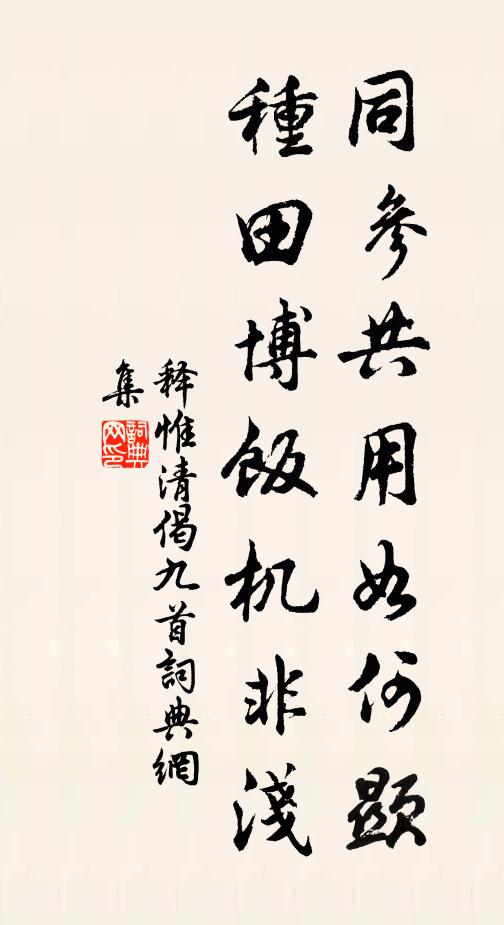 同參共用如何顯
種田博飯机非淺
释惟清偈九首詞典網
集
詞典
网印